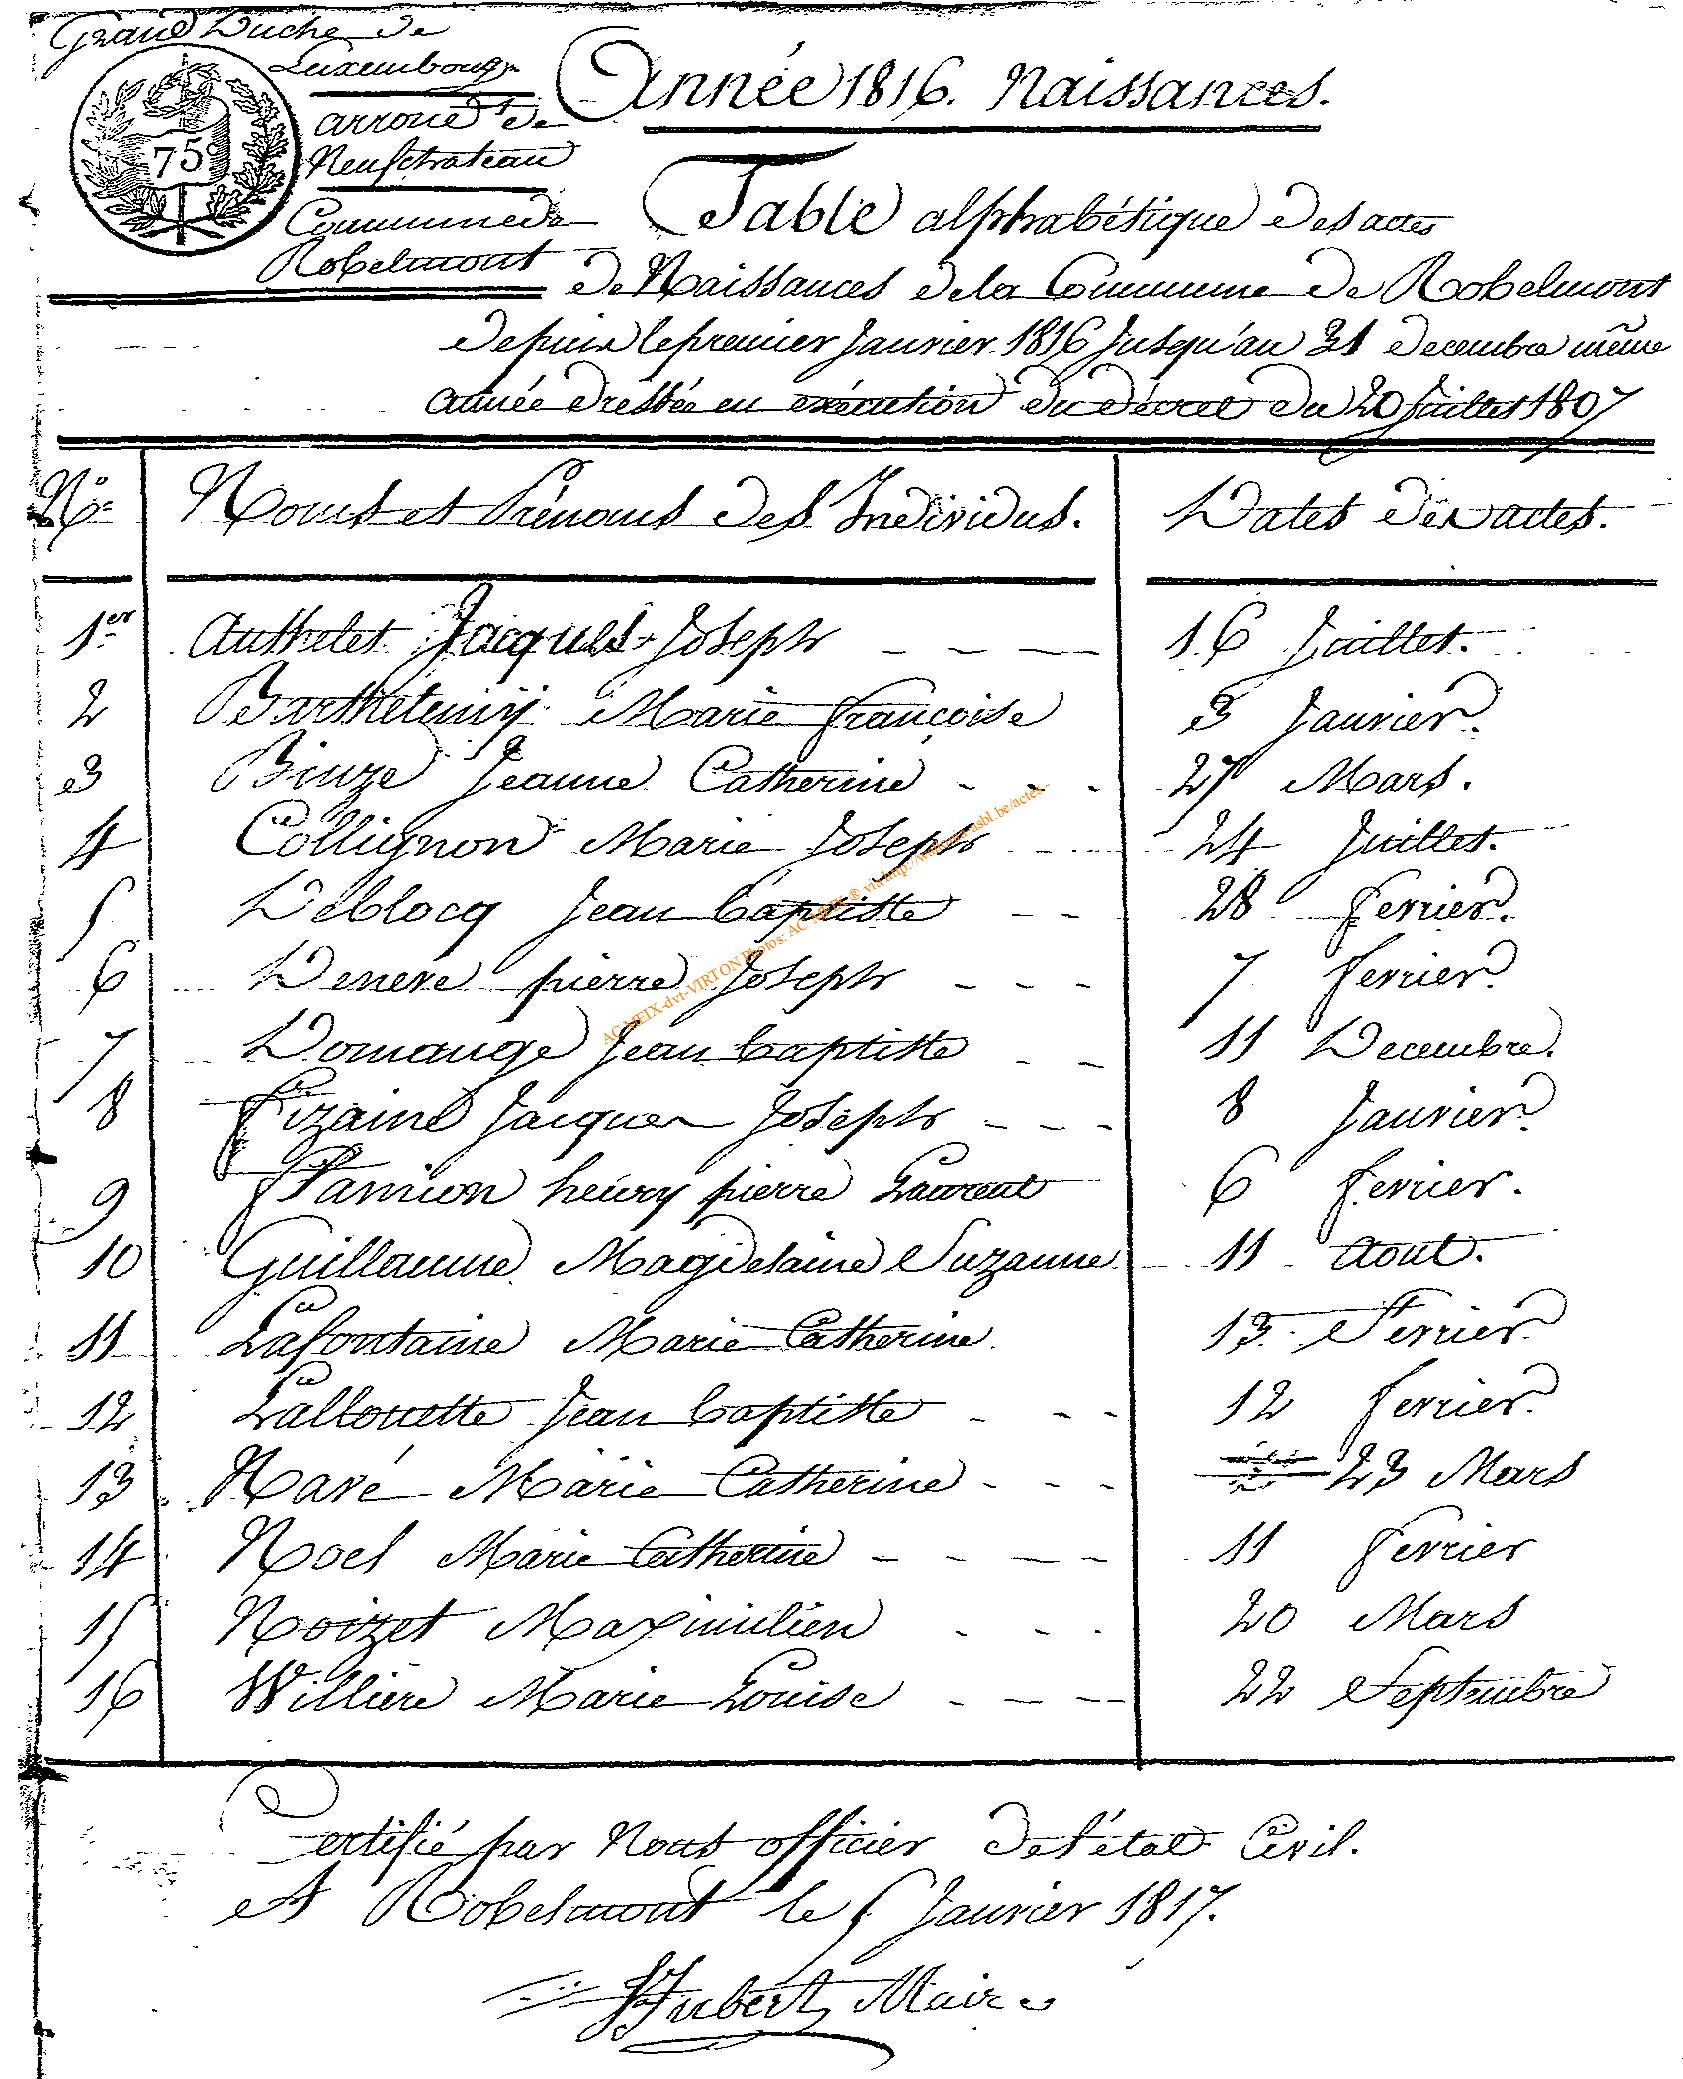 Grand Duché de
Luxembourg
arron.t de
Neufchateau
Commune de
Robelmont
75
Année 1816. Naissances.
Table alphabétique des actes
de Naissances de la Commune de Robelmont
depuis le premier Janvier 1816 Jusqu'au 31 decembre même
année dressée en exécution du décret du 20 Juillet 1807
N.o Noms et Prénoms des Individus. Dates des actes.
1er Authelet Jacques Joseph 16 Juillet.
2 Barthelemÿ Marie françoise 3 Janvier.
3 Binze Jeanne Catherine 27 Mars.
4 Collignon Marie Joseph 24 Juillet.
5 Deblocq Jean baptiste 28 fevrier.
6 Deneve pierre Joseph 7 fevrier.
7 Domange Jean baptiste 11 Decembre.
8 Fizaine Jacques Joseph 8 Janvier.
9 Flamion henry pierre Laurent 6 fevrier.
10 Guillaume Magdelaine Suzanne 11 Aout.
11 Lafontaine Marie Catherine 13 Fevrier.
12 Lallouette Jean baptiste 12 fevrier.
13 Navé Marie Catherine 23 Mars
14 Noel Marie Catherine 11 fevrier
15 Noizet Maximilien 20 Mars
16 Willière Marie Louise 22 Septembre
Certifié par Nous officier de l'état Civil.
A Robelmont le 5 Janvier 1817.
Hubert Maire
AC MEIX-dvt-VIRTON Photos: AC